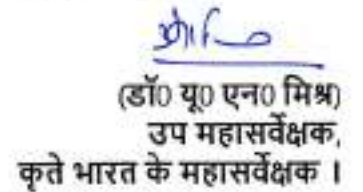 (डॉ0 यू0 एन0 मिश्र)
उप महासर्वेक्षक,
कृते भारत के महासर्वेक्षक ।